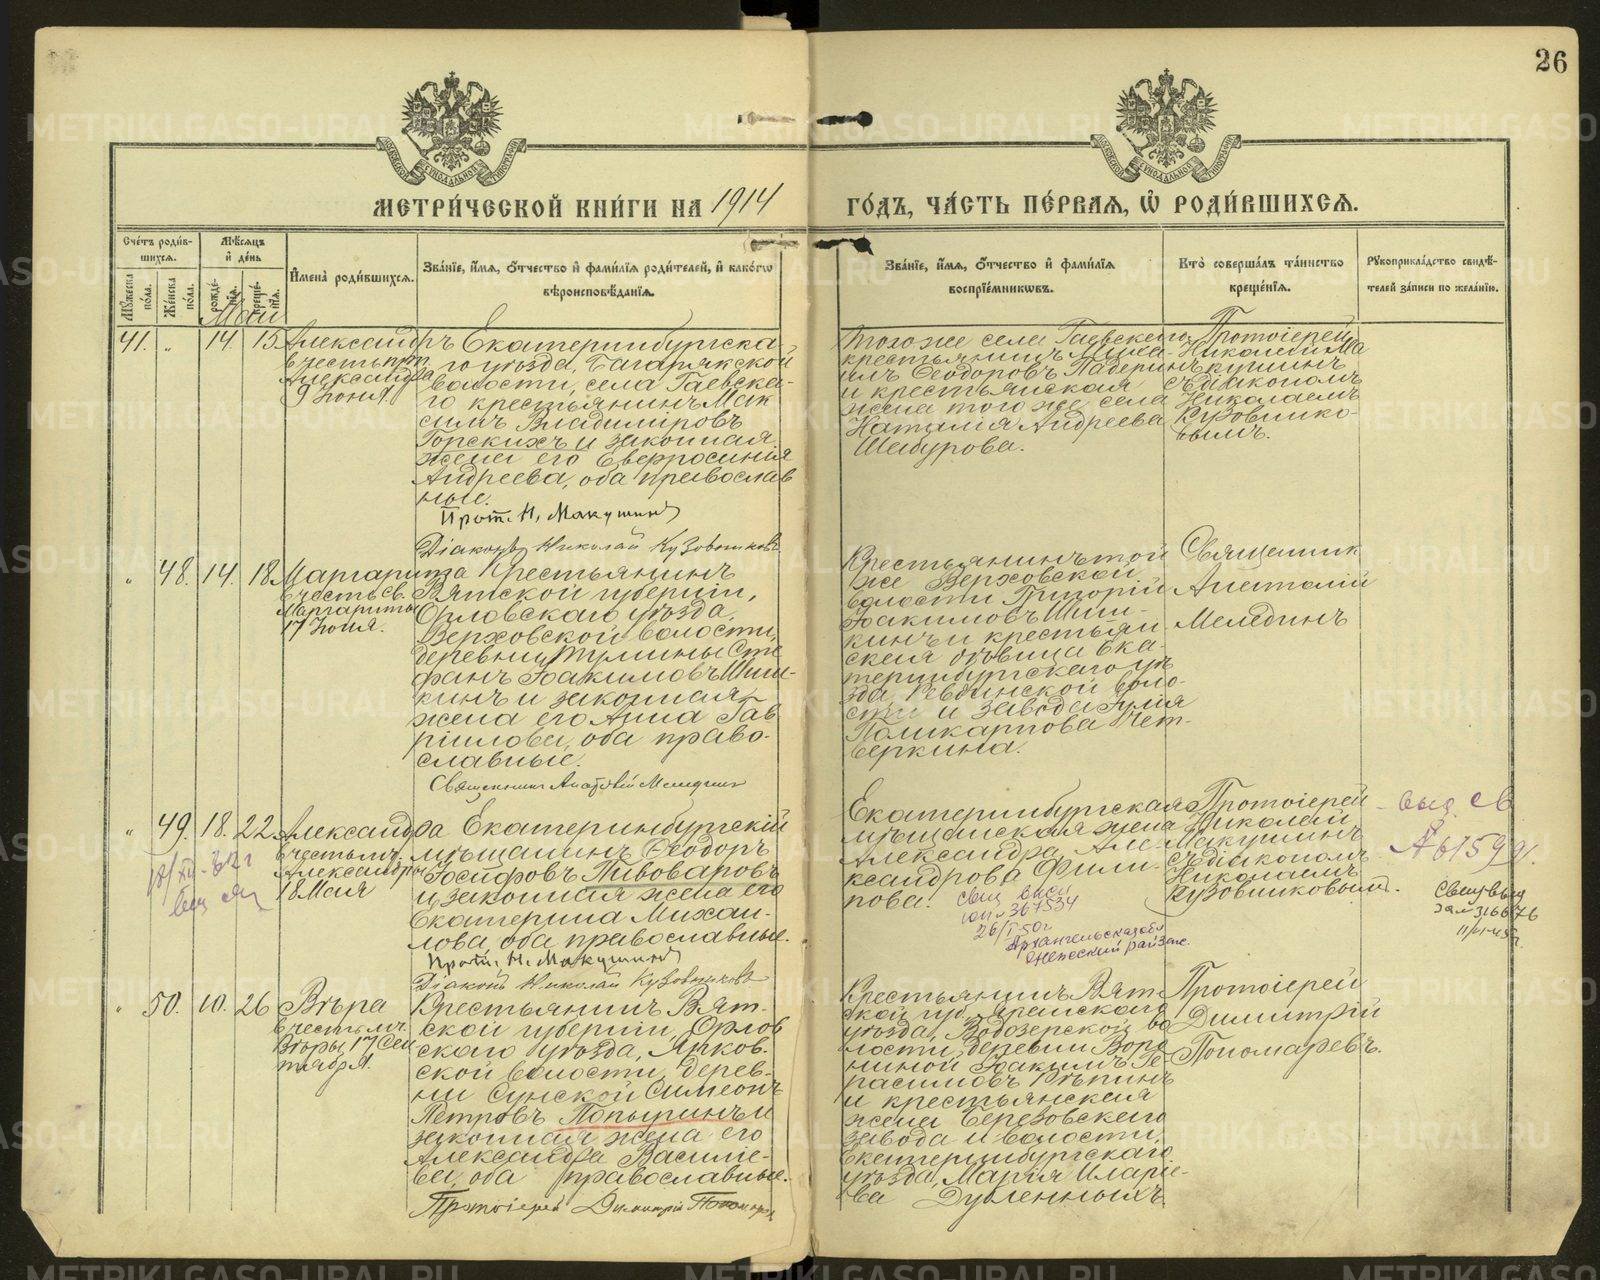 26
МЕТРИ́ЧЕСКОЙ КНИ́ГИ НА 1914
ГО́ДЪ, ЧА́СТЬ ПЕ́РВАЯ, Ѽ РОДИ́ВШИХСЯ.
Сче́тъ роди́в-
шихся.
Му́жеска по́ла.
Же́нска по́ла.
Мѣ́сяцъ
и҆ де́нь
рожде́-
нїѧ.
креще́-
нїѧ.
Май
И҆мена̀ роди́вшихся.
Зва́нїе, и҆́мя, ѻ҆́тчество и҆ фами́лїя роди́телей, и҆ како́гѡ
вѣроисповѣ́данїя.
Зва́нїе, и҆́мя, ѻ҆́тчество и҆ фами́лїя
воспрїе́мникѡвъ.
Кто̀ соверша́лъ та́инство
креще́нїя.
Рꙋкоприкла́дство свидѣ́-
телей за́писи по жела́нїю.
41. „ 14. 15.
Александръ
въ честь
Александра
9 Іюня
Екатеринбургска
го уѣзда, Багарякской
волости, села Гаевска-
го крестьянинъ Мак
симъ Владиміровъ
Горскихъ и законная
жена его Евфросинія
Андреева, оба православ
ные.
Прот. Н. Макушинъ
Діаконъ Николай Кузовниковъ
Того же села Гаевскаго
крестьянинъ Миха-
илъ Ѳеодоровъ Падеринъ
и крестьянская
жена того же села
Наталія Андреева
Шабурова.
Протоіерей
Николай Ма
кушинъ
съ діакономъ
Николаемъ
Кузовнико-
вымъ.
„ 48. 14. 18.
Маргарита
въ честь св.
Маргариты
17 Іюля.
Крестьянинъ
Вятской губерніи,
Орловскаго уѣзда,
Верховской волости,
деревни Сте
фанъ Іоакимовъ Шиш-
кинъ и законная
жена его Анна Гав
ріилова, оба право-
славные.
Священникъ Анатолій Меледин
Крестьянинъ той
же Верховской
волости Григорій
Іоакимовъ Шиш-
кинъ и крестьян
ская дѣвица Ека
теринбургскаго уѣ
зда, Ревдинской воло-
сти и завода Юлія
Поликарпова Чет-
веркина.
Священник
Анатолій
Мелединъ
„ 49. 18. 22.
Александра
въ честь мч.
Александры
18 Мая
Екатеринбургскій
мѣщанинъ Ѳеодоръ
Іосифовъ Пивоваровъ
и законная жена его
Екатерина Михаи-
лова, оба православные.
Прот. Н. Макушинъ
Діаконъ Николай Кузовниковъ
Екатеринбургская
мѣщанская жена
Александра Але-
ксандрова Фили-
пова.
Протоіерей
Николай
Макушинъ
съ діакономъ
Николаемъ
Кузовниковымъ.
26/I-50г
Архангельская обл
„ 50. 10. 26
Вѣра
въ честь мч.
Вѣры, 17 Сен
тября.
Крестьянинъ Вят-
ской губерніи, Орлов
скаго уѣзда, Янков-
ской волости, дерев-
ни Сунской Симеонъ
Петровъ Попыринъ и
законная жена его
Александра Василье-
ва, оба православные.
Протоіерей Димитрій Пономар
Крестьянинъ Вят-
ской губ., Яранскаго
уѣзда, Водозерской во
лости, деревни Воро
ниной Іоакимъ Ге-
расимовъ Рѣпинъ
и крестьянская
жена Березовскаго
завода и волости,
Екатеринбургскаго
уѣзда, Марія Иларіе-
ва Дувленныхъ
Протоіерей
Димитрій
Пономаревъ.
METRIKI.GASO-URAL.RU